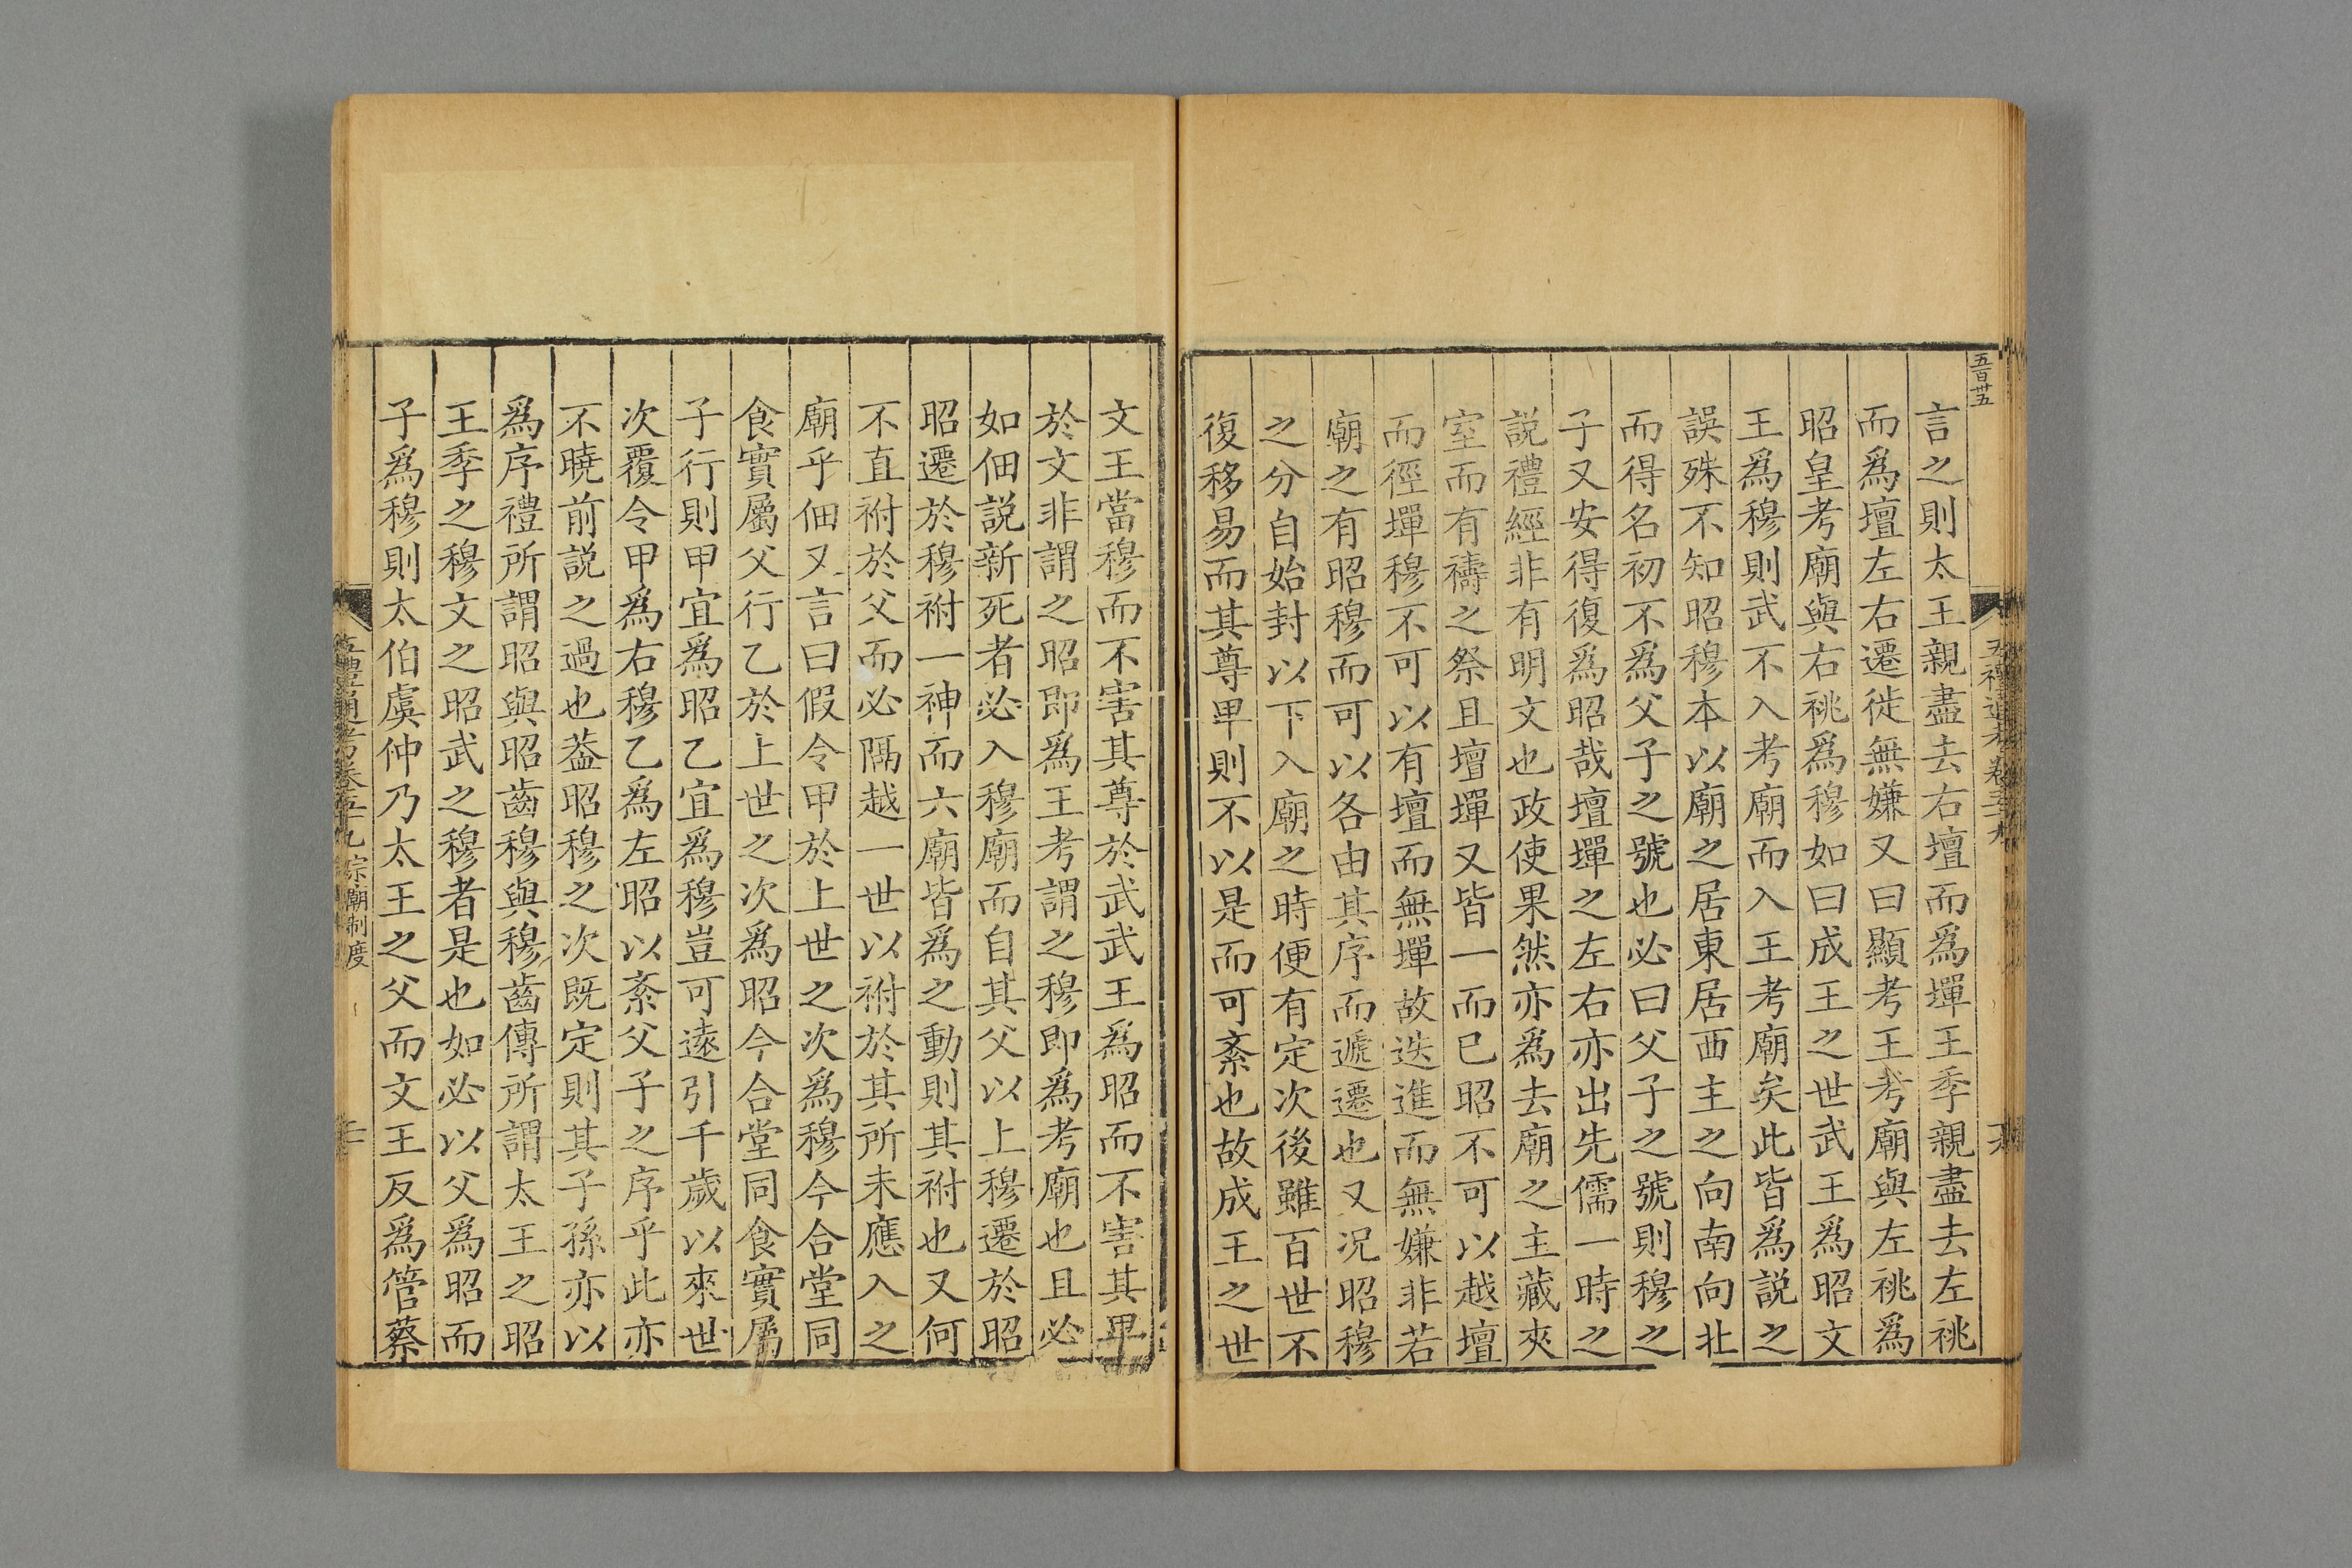 五百卅五
言之則太王親盡去右壇而爲墠王季親盡去左祧
而爲壇左右遷徙無嫌又曰顯考王考廟與左祧爲
昭皇考廟與右祧爲穆如曰成王之世武王爲昭文
王爲穆則武不入考廟而入王考廟矣此皆爲説之
誤殊不知昭穆本以廟之居東居西主之向南向北
而得名初不爲父子之號也必曰父子之號則穆之
子又安得復爲昭哉壇墠之左右亦出先儒一時之
説禮經非有明文也政使果然亦爲去廟之主藏夾
室而有禱之祭且壇墠又皆一而已昭不可以越壇
而徑墠穆不可以有壇而無墠故迭進而無嫌非若
廟之有昭穆而可以各由其序而遞遷也又况昭穆
之分自始封以下入廟之時便有定次後雖百世不
復移易而其尊畢則不以是而可紊也故成王之世
文王當穆而不害其尊於武武王爲昭而不害其畢
於文非謂之昭即爲王考謂之穆即爲考廟也且必
如佃説新死者必入穆廟而自其父以上穆遷於昭
昭遷於穆祔一神而六廟皆爲之動則其祔也又何
不直祔於父而必隔越一世以祔於其所未應入之
廟乎佃又言曰假令甲於上世之次爲穆今合堂同
食實屬父行乙於上世之次爲昭今合堂同食實屬
子行則甲宜爲昭乙宜爲穆豈可遠引千歲以來世
次覆令甲爲右穆乙爲左昭以紊父子之序乎此亦
不曉前説之過也葢昭穆之次既定則其子孫亦以
爲序禮所謂昭與昭齒穆與穆齒傳所謂太王之昭
王季之穆文之昭武之穆者是也如必以父爲昭而
子爲穆則太伯虞仲乃太王之父而文王反爲管蔡
五禮通考卷五十九 宗廟制度